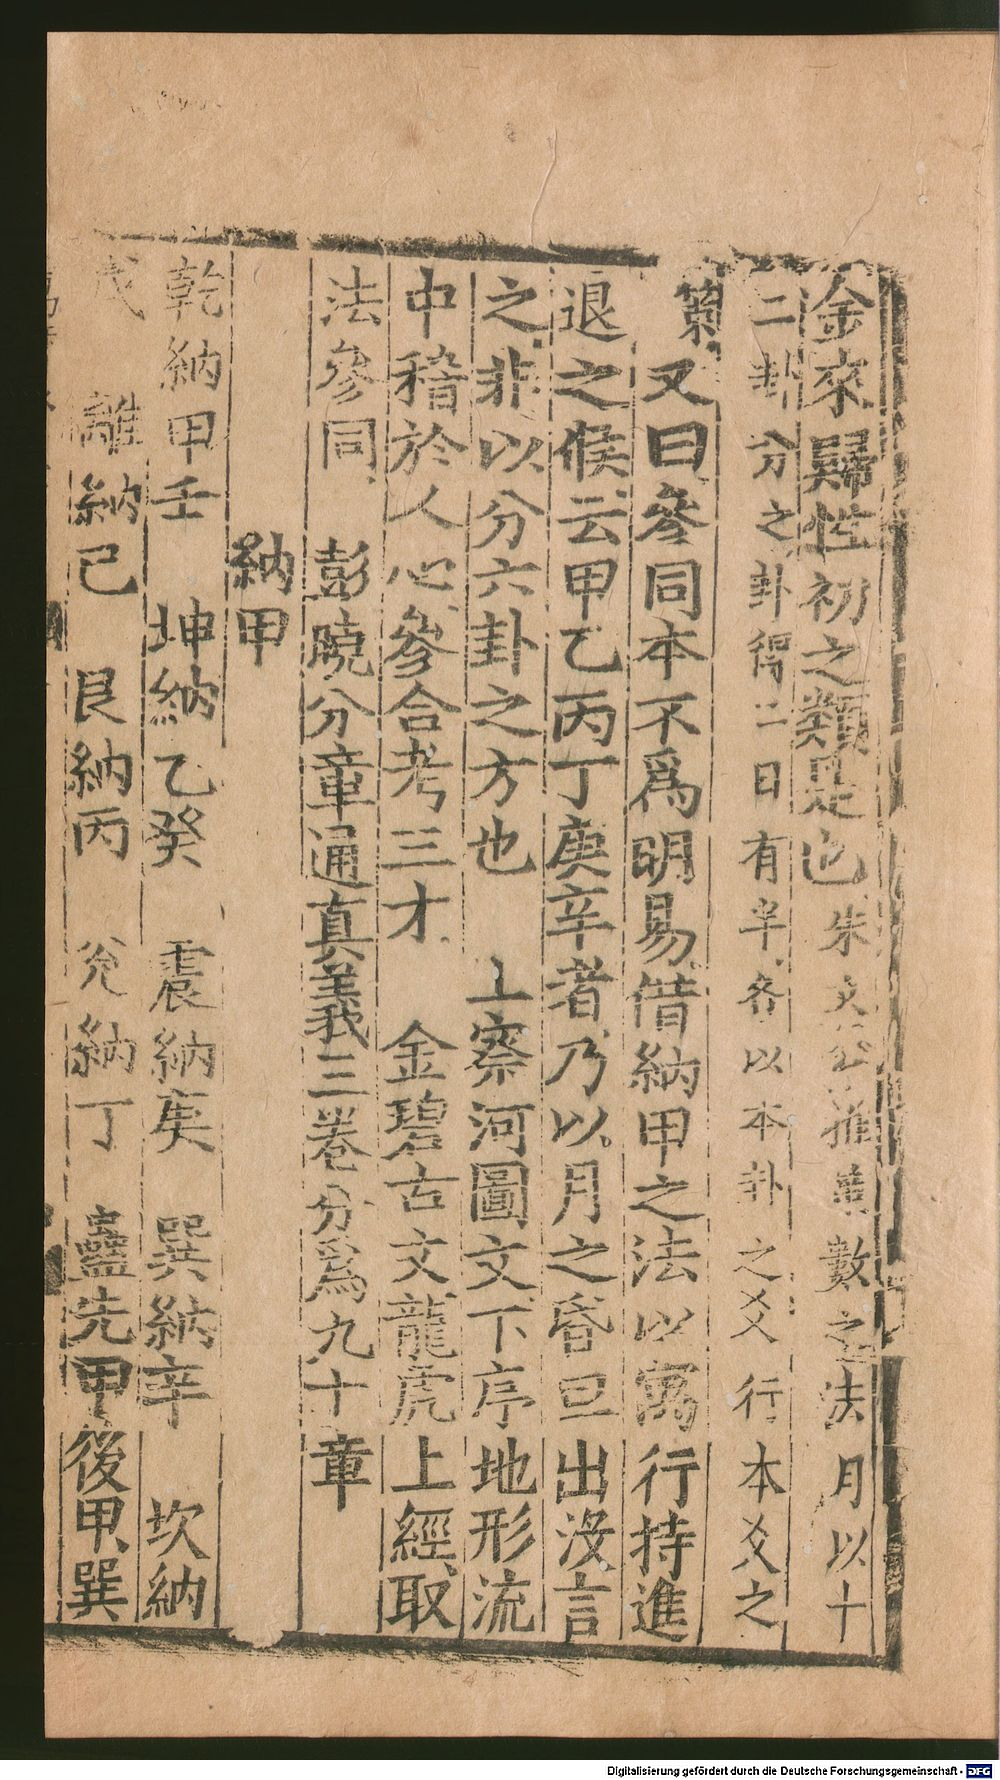 金來歸性初之類是也朱文公推策數之法月以十
二卦分之卦得二日有半各以本卦之爻行本爻之
策又曰參同本不爲明易借納甲之法以寓行持進
退之候云甲乙丙丁庚辛者乃以月之昏旦出没言
之非以分六卦之方也　上察河圖文下序地形流
中稽於人心參合考三才　金碧古文龍虎上經取
法參同　彭曉分章通真義三卷分爲九十章
納甲
乾納甲壬　坤納乙癸　震納庚　巽納辛　坎納
戊　離納己　艮納丙　兌納丁　蠱先甲後甲巽
Digitalisierung gefördert durch die Deutsche Forschungsgemeinschaft - DFG